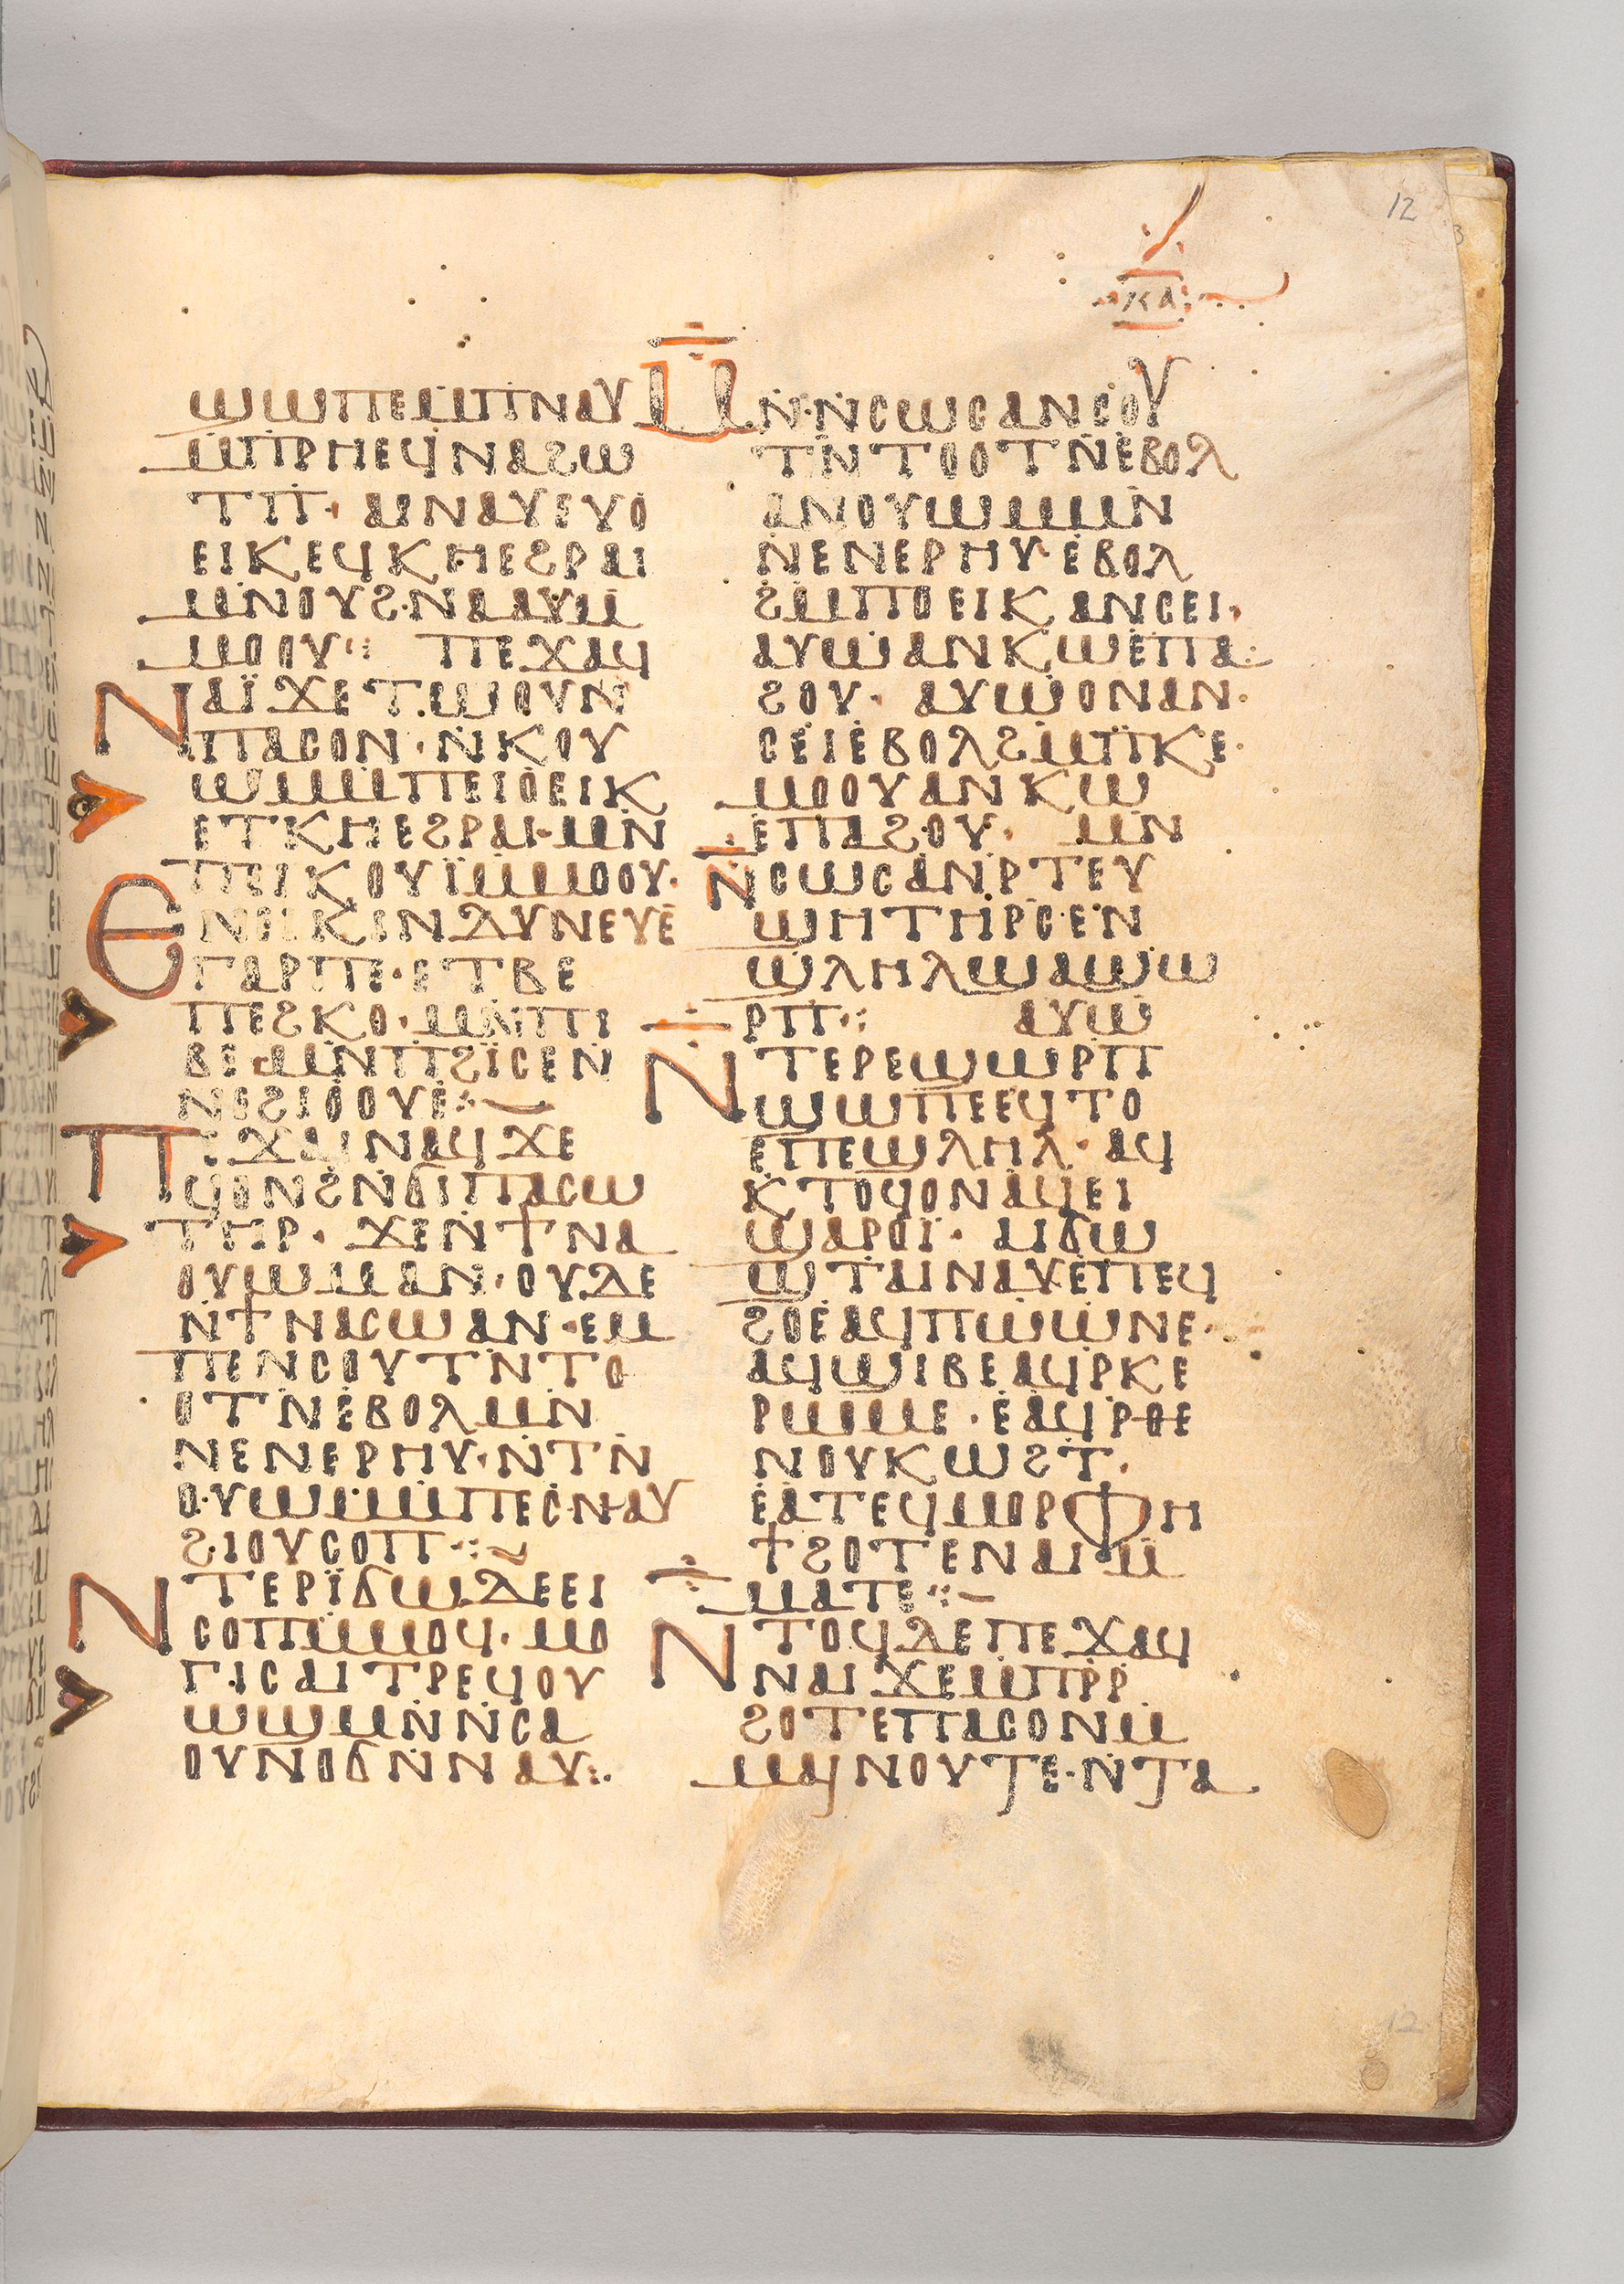 12
ⲕⲁ
ϣⲱⲡⲉⲙⲡⲛⲁⲩ
ⲙⲡⲣⲏⲉϥⲛⲁϩⲱ
ⲧⲡ· ⲁⲓⲛⲁⲩⲉⲩⲟ
ⲉⲓⲕⲉϥⲕⲏⲉϩⲣⲁⲓ
ⲙⲛⲟⲩϩⲛⲁⲁⲩⲙ
ⲙⲟⲟⲩ⁖ ⲡⲉϫⲁϥ
ⲛⲁⲓ̈ϫⲉⲧⲱⲟⲩⲛ
ⲡⲁⲥⲟⲛ·ⲛⲕⲟⲩ
ⲱⲙⲙⲡⲉⲓⲟⲉⲓⲕ
ⲉⲧⲕⲏⲉϩⲣⲁⲓ·ⲙⲛ
ⲡⲉⲓⲕⲟⲩⲓ̈ⲙⲙⲟⲟⲩ·
ⲉⲛⲓⲕⲓⲛⲇⲩⲛⲉⲩⲉ
ⲅⲁⲣⲡⲉ·ⲉⲧⲃⲉ
ⲡⲉϩⲕⲟ·ⲙⲛⲡⲓ
ⲃⲉⲙⲛⲡϩⲓⲥⲉⲛ
ⲛⲉϩⲓⲟⲟⲩⲉ⁖
ⲡⲉϫⲁⲓⲛⲁϥϫⲉ
ϥⲟⲛϩⲛϭⲓⲡⲁⲥⲱ
ⲧⲏⲣ· ϫⲉⲛϯⲛⲁ
ⲟⲩⲱⲙⲁⲛ·ⲟⲩⲇⲉ
ⲛϯⲛⲁⲥⲱⲁⲛ·ⲉⲙ
ⲡⲉⲛⲥⲟⲩⲧⲛⲧⲟ
ⲟⲧⲛⲉⲃⲟⲗⲙⲛ
ⲛⲉⲛⲉⲣⲏⲩ·ⲛⲧⲛ
ⲟⲩⲱϣⲙⲡⲉⲥⲛⲁⲩ
ϩⲓⲟⲩⲥⲟⲡ⁖
ⲛⲧⲉⲣⲓ̈ϭⲱⲇⲉⲉⲓ
ⲥⲟⲡⲥⲙⲙⲟϥ·ⲙⲟ
ⲅⲓⲥⲁⲓⲧⲣⲉϥⲟⲩ
ⲱϣⲙⲛⲛⲥⲁ
ⲟⲩⲛⲟϭⲛⲛⲁⲩ⁖
ⲙⲛ·ⲛⲥⲱⲥⲁⲛⲥⲟⲩ
ⲧⲛⲧⲟⲟⲧⲛⲉⲃⲟⲗ
ⲁⲛⲟⲩⲱⲙⲙⲛ
ⲛⲉⲛⲉⲣⲏⲩ·ⲉⲃⲟⲗ
ϩⲙⲡⲟⲉⲓⲕⲁⲛⲥⲉⲓ·
ⲁⲩⲱⲁⲛⲕⲱⲉⲡⲁ
ϩⲟⲩ· ⲁⲩⲱⲟⲛⲁⲛ
ⲥⲉⲓⲉⲃⲟⲗϩⲙⲡⲕⲉ
ⲙⲟⲟⲩⲁⲛⲕⲱ
ⲉⲡⲁϩⲟⲩ· ⲙⲛ
ⲛⲥⲱⲥⲁⲛⲣⲧⲉⲩ
ϣⲏⲧⲏⲣⲥⲉⲛ
ϣⲗⲏⲗϣⲁϣⲱ
ⲣⲡ⁖ ⲁⲩⲱ
ⲛⲧⲉⲣⲉϣⲱⲣⲡ
ϣⲱⲡⲉⲉϥⲧⲟ
ⲉⲡⲉϣⲗⲏⲗ·ⲁϥ
ⲕⲧⲟϥⲟⲛⲁϥⲉⲓ
ϣⲁⲣⲟⲓ̈· ⲁⲓϭⲱ
ϣⲧⲁⲓⲛⲁⲩⲉⲡⲉϥ
ϩⲟⲉⲁϥⲡⲱⲱⲛⲉ·
ⲁϥϣⲓⲃⲉⲁϥⲣⲕⲉ
ⲣⲱⲙⲉ·ⲉⲁϥⲣⲑⲉ
ⲛⲟⲩⲕⲱϩⲧ·
ⲉⲁⲧⲉϥⲙⲟⲣⲫⲏ
ϯϩⲟⲧⲉⲛⲁⲓⲙ
ⲙⲁⲧⲉ⁖
ⲛⲧⲟϥⲇⲉⲡⲉϫⲁϥ
ⲛⲁⲓϫⲉⲙⲡⲣⲣ
ϩⲟⲧⲉⲡⲁⲥⲟⲛⲙ
ⲙⲁⲓⲛⲟⲩⲧⲉ·ⲛⲧⲁ
12